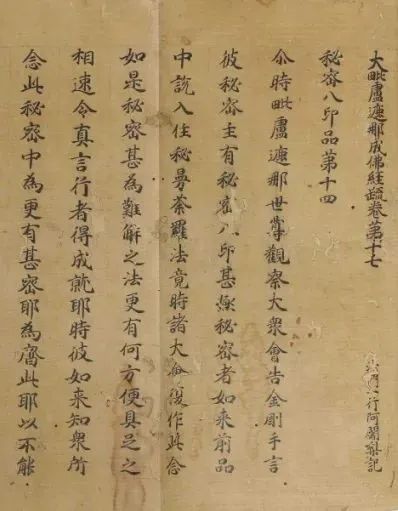 大毗盧遮那成佛經疏卷第十七
沙門一行阿闍梨記
秘密八印品第十四
尒時毗盧遮那世尊觀察大衆會告金剛手言
彼秘密主有秘密八印甚㴱秘密者如来前品
中說入住秘曼荼羅法竟時諸大會復作此念
如是秘密甚為難解之法更有何方便具足之
相速令真言行者得成就耶時彼如来知衆所
念此秘密中為更有甚密耶為齊此耶以不能